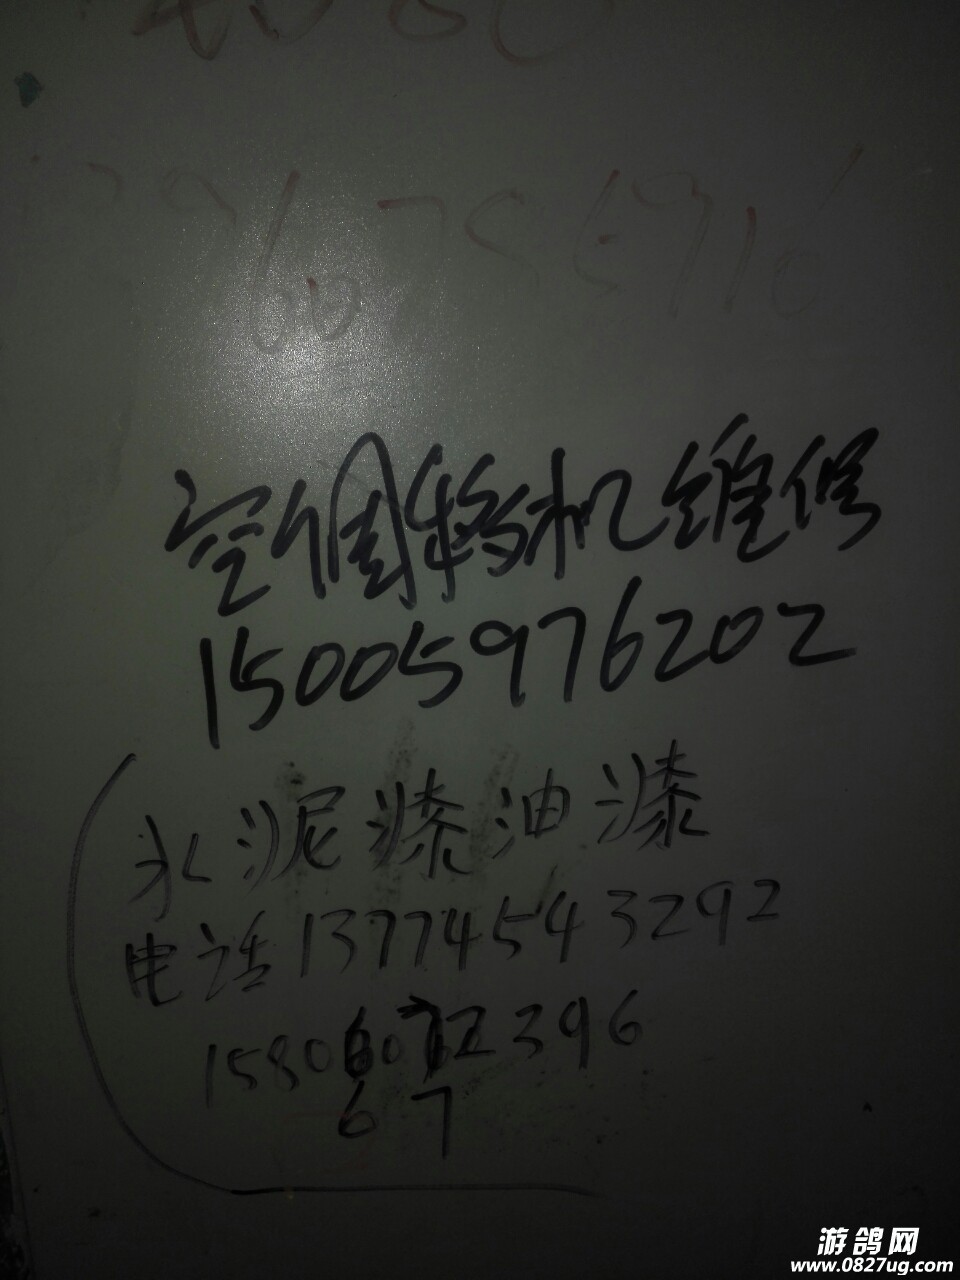 空调移机维保
15005976202
水泥漆油漆
电话13774543292
15806072396
6 7
游鸽网
www.0827ug.com